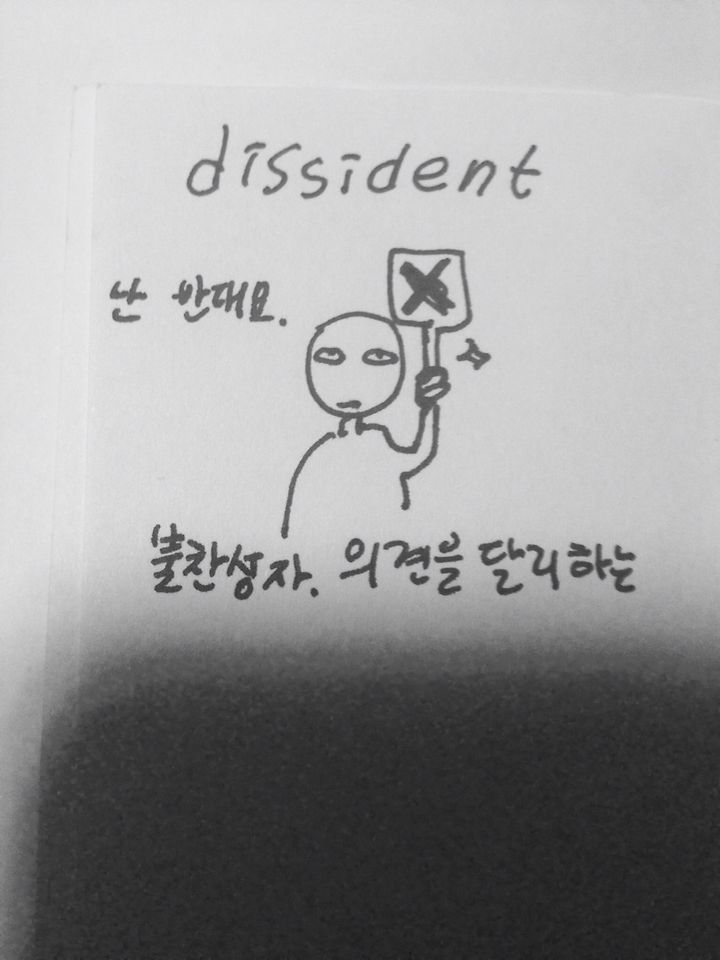 dissident
난 반대요.
불찬성자. 의견을 달리하는